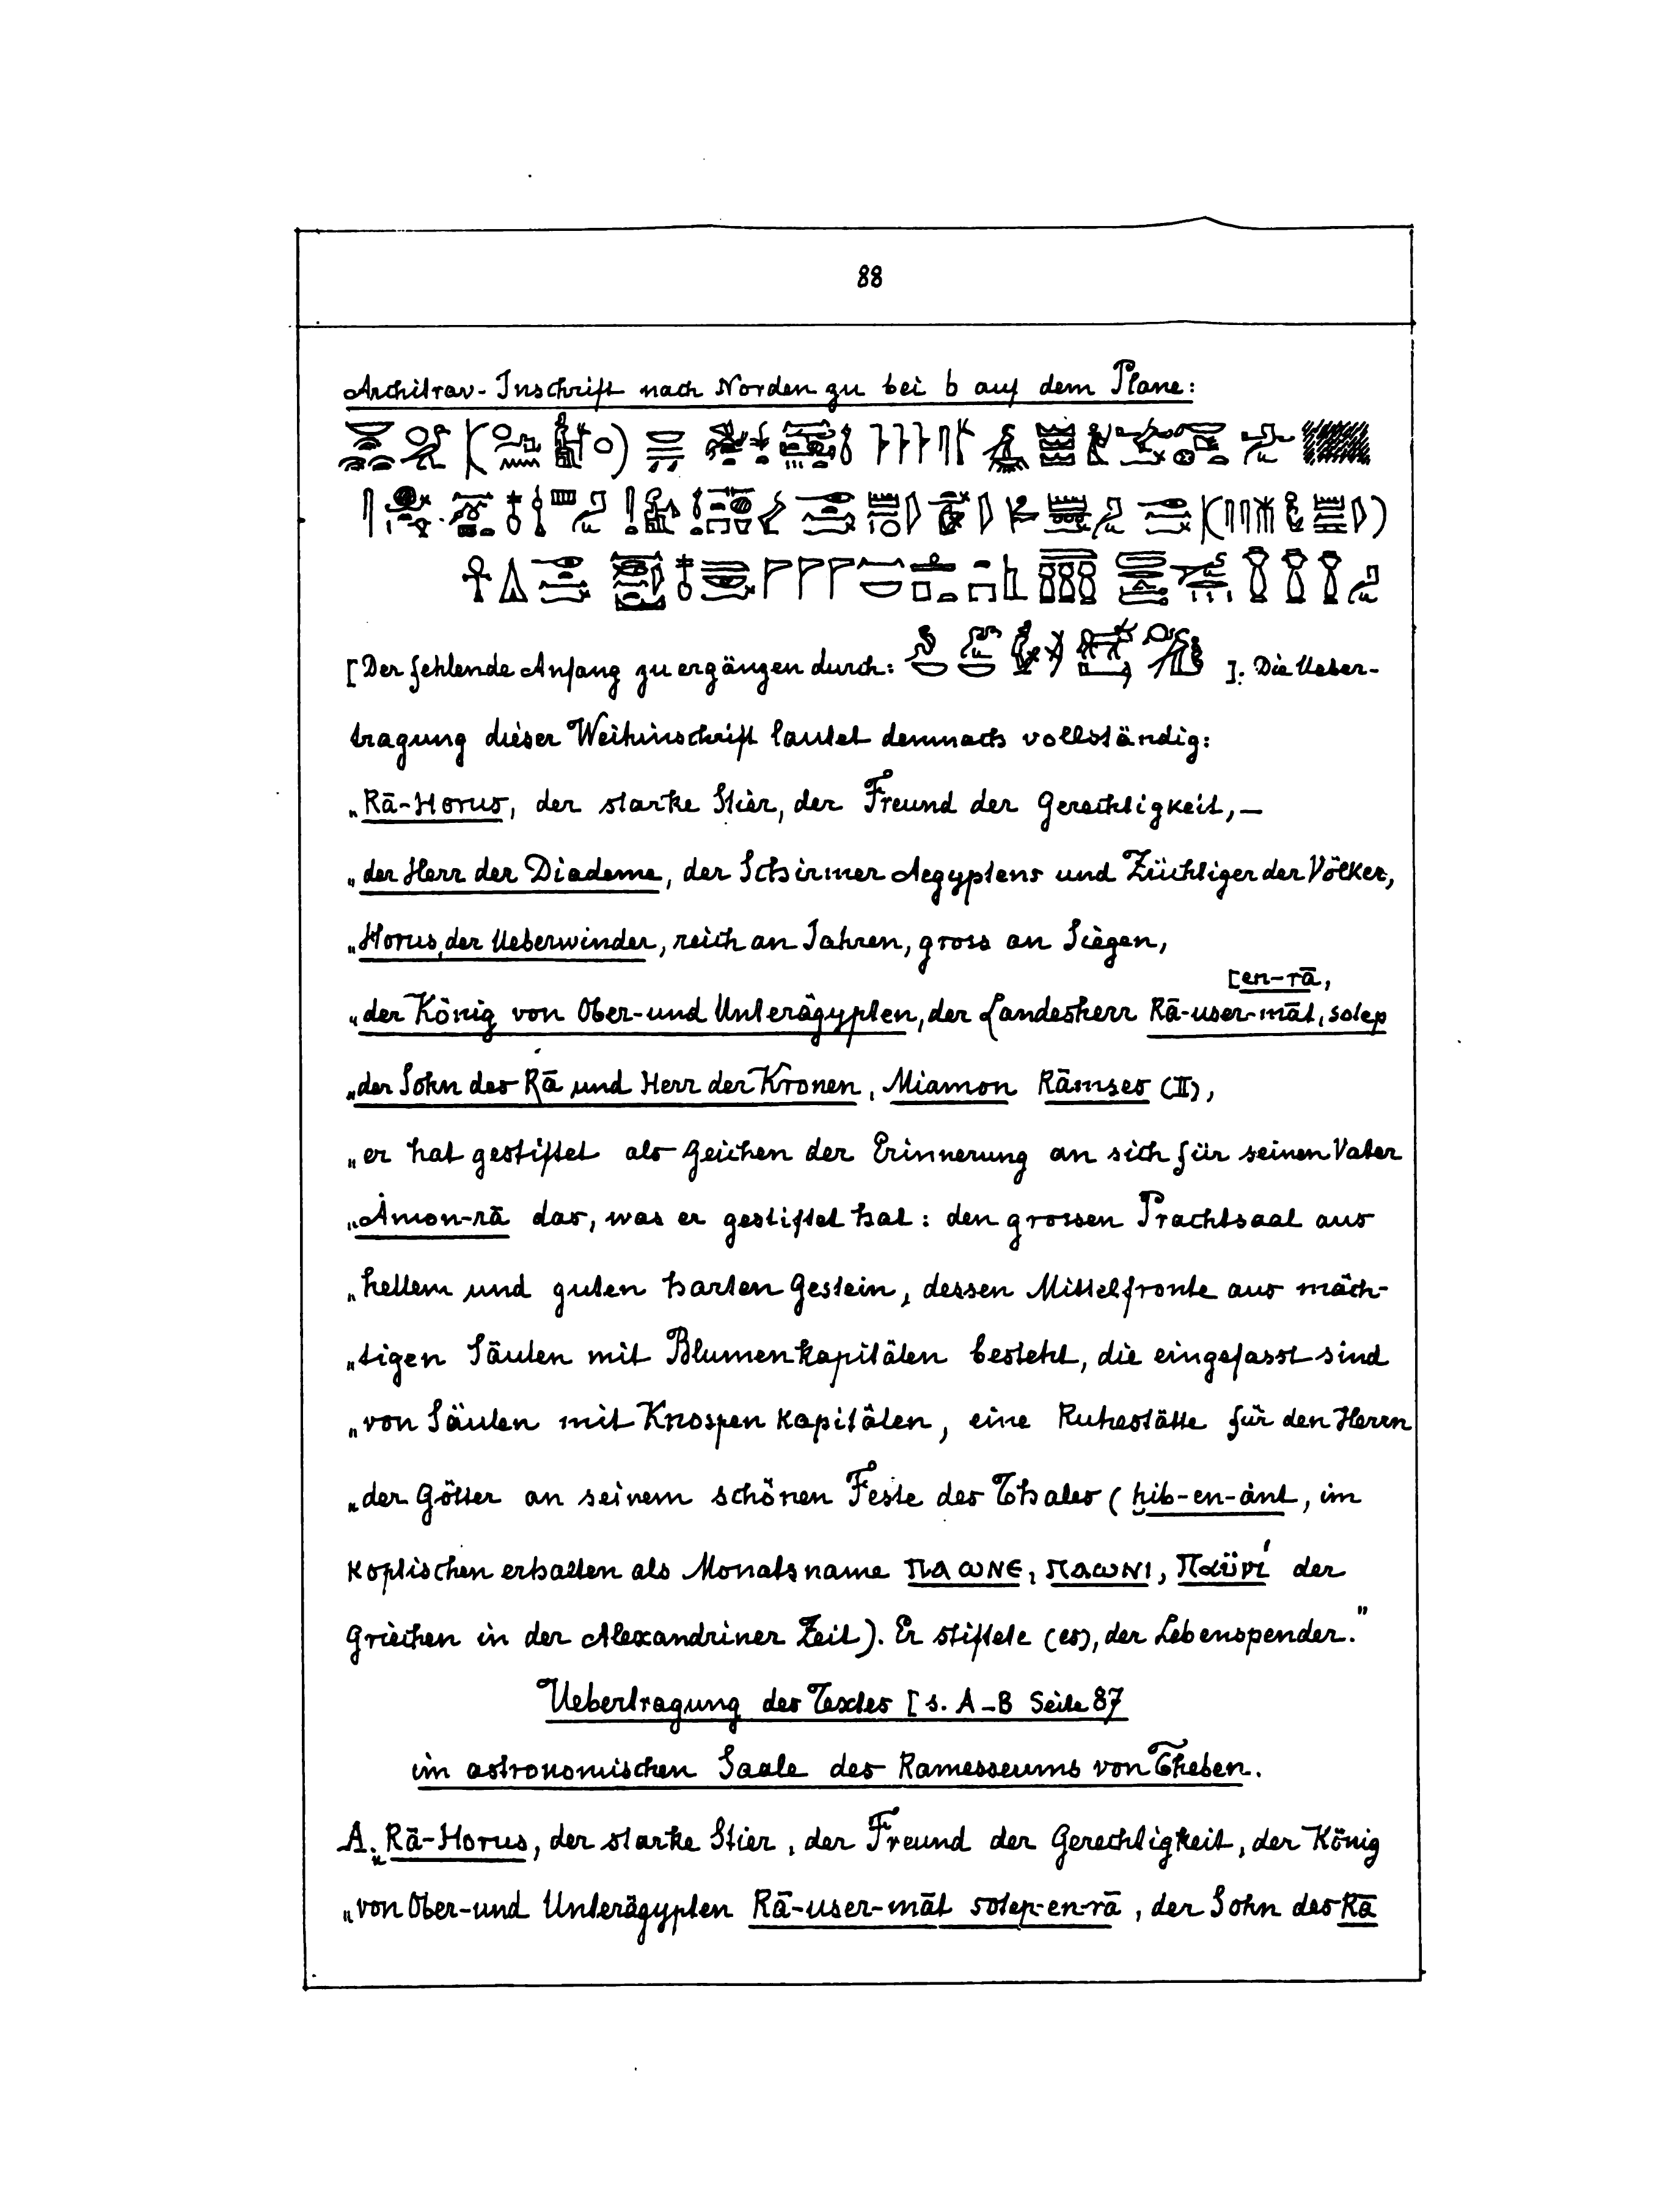 88
Architrav-Inschrift nach Norden zu bei b auf dem Plane:
[Der fehlende Anfang zu ergänzen durch: ]: Die Ueber-
tragung dieser Weihinschrift lautet demnach vollständig:
„Rā-Horus, der starke Stier, der Freund der Gerechtigkeit,—
„der Herr der Diademe, der Schirmer Aegyptens und Züchtiger der Völker,
„Horus, der Ueberwinder, reich an Jahren, gross an Siegen,
[en-rā,
„der König von Ober-und Unterägypten, der Landesherr Rā-user-māt, sotep
„der Sohn des Rā und Herr der Kronen, Miamon Rāmses (II),
„er hat gestiftet als Zeichen der Erinnerung an sich für seinen Vater
„Åmon-rā das, was er gestiftet hat: den grossen Prachtsaal aus
„hellem und guten harten Gestein, dessen Mittelfronte aus mäch-
„tigen Säulen mit Blumenkapitälen besteht, die eingefasst sind
„von Säulen mit Knospenkapitälen, eine Ruhestätte für den Herrn
„der Götter an seinem schönen Feste des Thales (ḥib-en-ànt, im
Koptischen erhalten als Monatsname ⲡⲁⲱⲛⲉ, ⲡⲁⲱⲛⲓ, Παϋνί der
Griechen in der Alexandriner Zeit). Er stiftete (es), der Lebenspender."
Uebertragung des Textes [s. A-B Seite 87
im astronomischen Saale des Ramesseums von Theben.
A. „Rā-Horus, der starke Stier, der Freund der Gerechtigkeit, der König
„von Ober-und Unterägypten Rā-user-māt sotep-en-rā, der Sohn des Rā